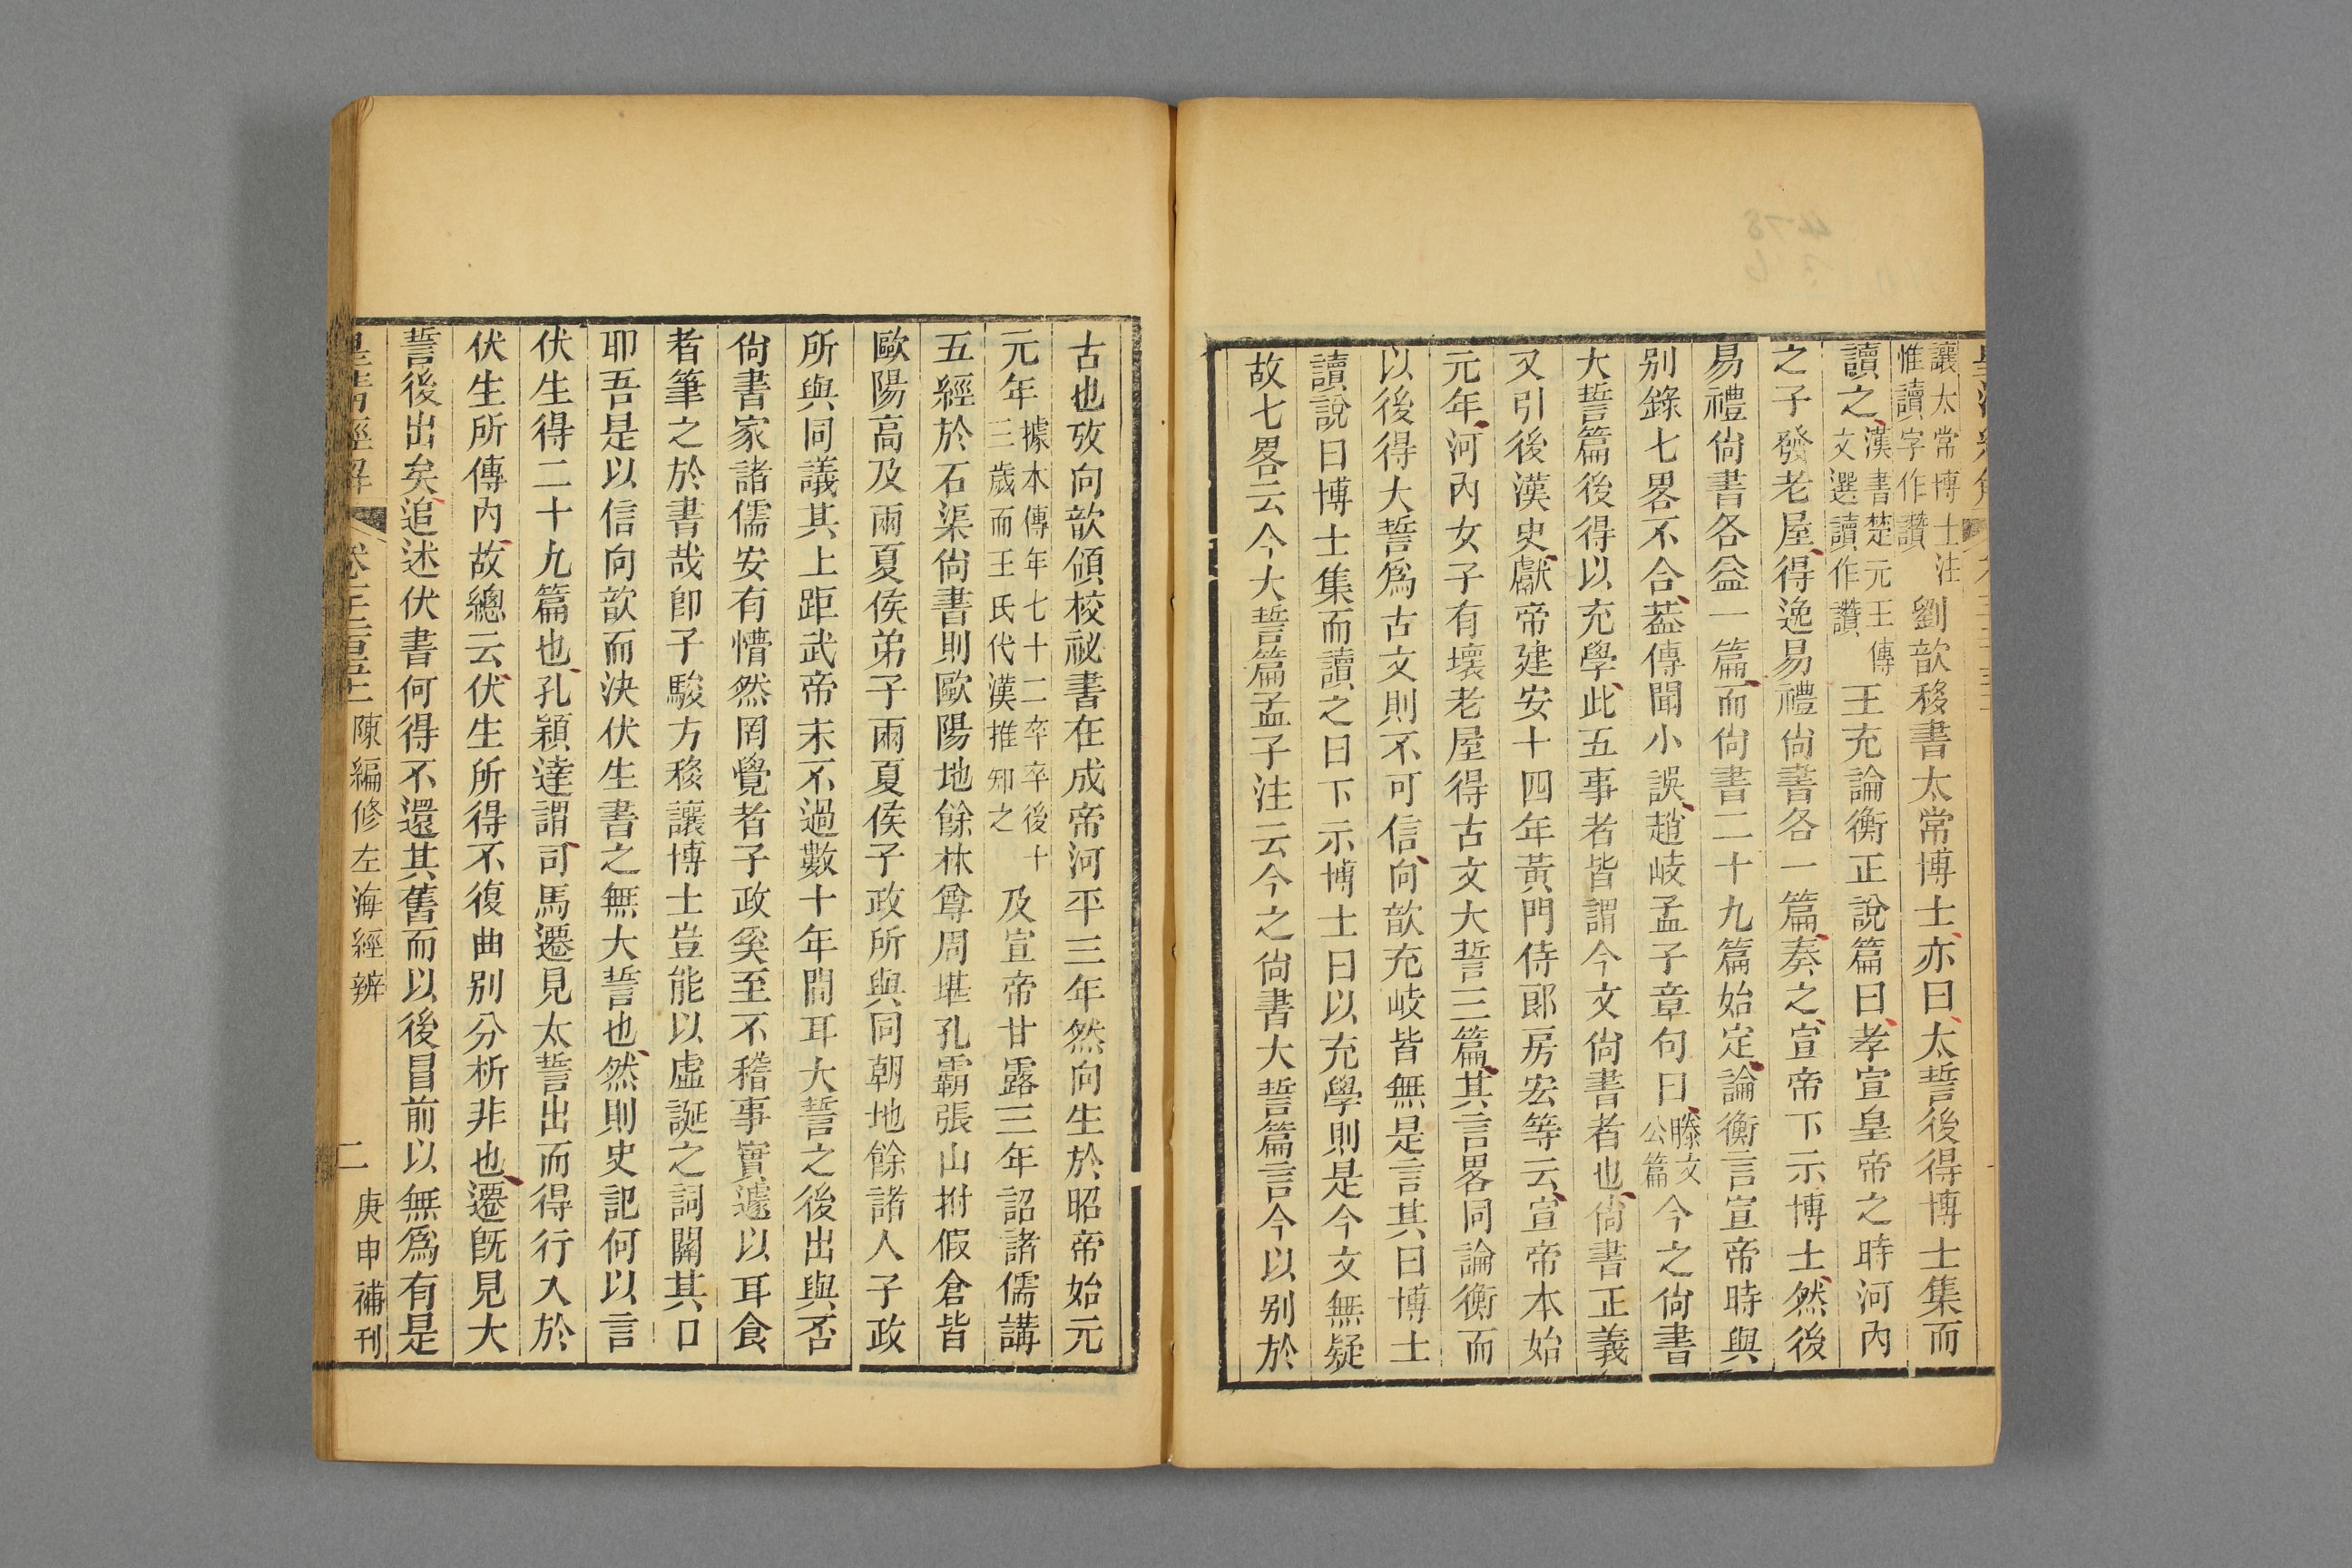 讓太常博士注
惟讀字作讚
劉歆移書太常博士亦曰太誓後得博士集而
讀之
漢書楚元王傳
文選讀作讚
王充論衡正說篇曰孝宣皇帝之時河內
之子發老屋得逸易禮尙書各一篇奏之宣帝下示博士然後
易禮尙書各益一篇而尙書二十九篇始定論衡言宣帝時與
别錄七畧不合葢傳聞小誤趙岐孟子章句曰
滕文
公篇
今之尙書
大誓篇後得以充學此五事者皆謂今文尙書者也尙書正義
又引後漢史獻帝建安十四年黃門侍郎房宏等云宣帝本始
元年河內女子有壞老屋得古文大誓三篇其言畧同論衡而
以後得大誓爲古文則不可信向歆充岐皆無是言其曰博士
讀說曰博士集而讀之曰下示博士曰以充學則是今文無疑
故七畧云今大誓篇孟子注云今之尙書大誓篇言今以别於
古也攷向歆領校祕書在成帝河平三年然向生於昭帝始元
元年
據本傳年七十二卒卒後十
三歲而王氏代漢推知之
及宣帝甘露三年詔諸儒講
五經於石渠尙書則歐陽地餘林尊周堪孔霸張山拊假倉皆
歐陽高及兩夏侯弟子兩夏侯子政所與同朝地餘諸人子政
所與同議其上距武帝末不過數十年間耳大誓之後出與否
尙書家諸儒安有懵然罔覺者子政奚至不稽事實遽以耳食
者筆之於書哉卽子駿方移讓博士豈能以虛誕之詞關其口
耶吾是以信向歆而決伏生書之無大誓也然則史記何以言
伏生得二十九篇也孔穎達謂司馬遷見太誓出而得行入於
伏生所傳內故總云伏生所得不復曲别分析非也遷旣見大
誓後出矣追述伏書何得不還其舊而以後冒前以無爲有是
皇淸經解
卷千二百五十一
陳編修左海經辨
二
庚申補刊